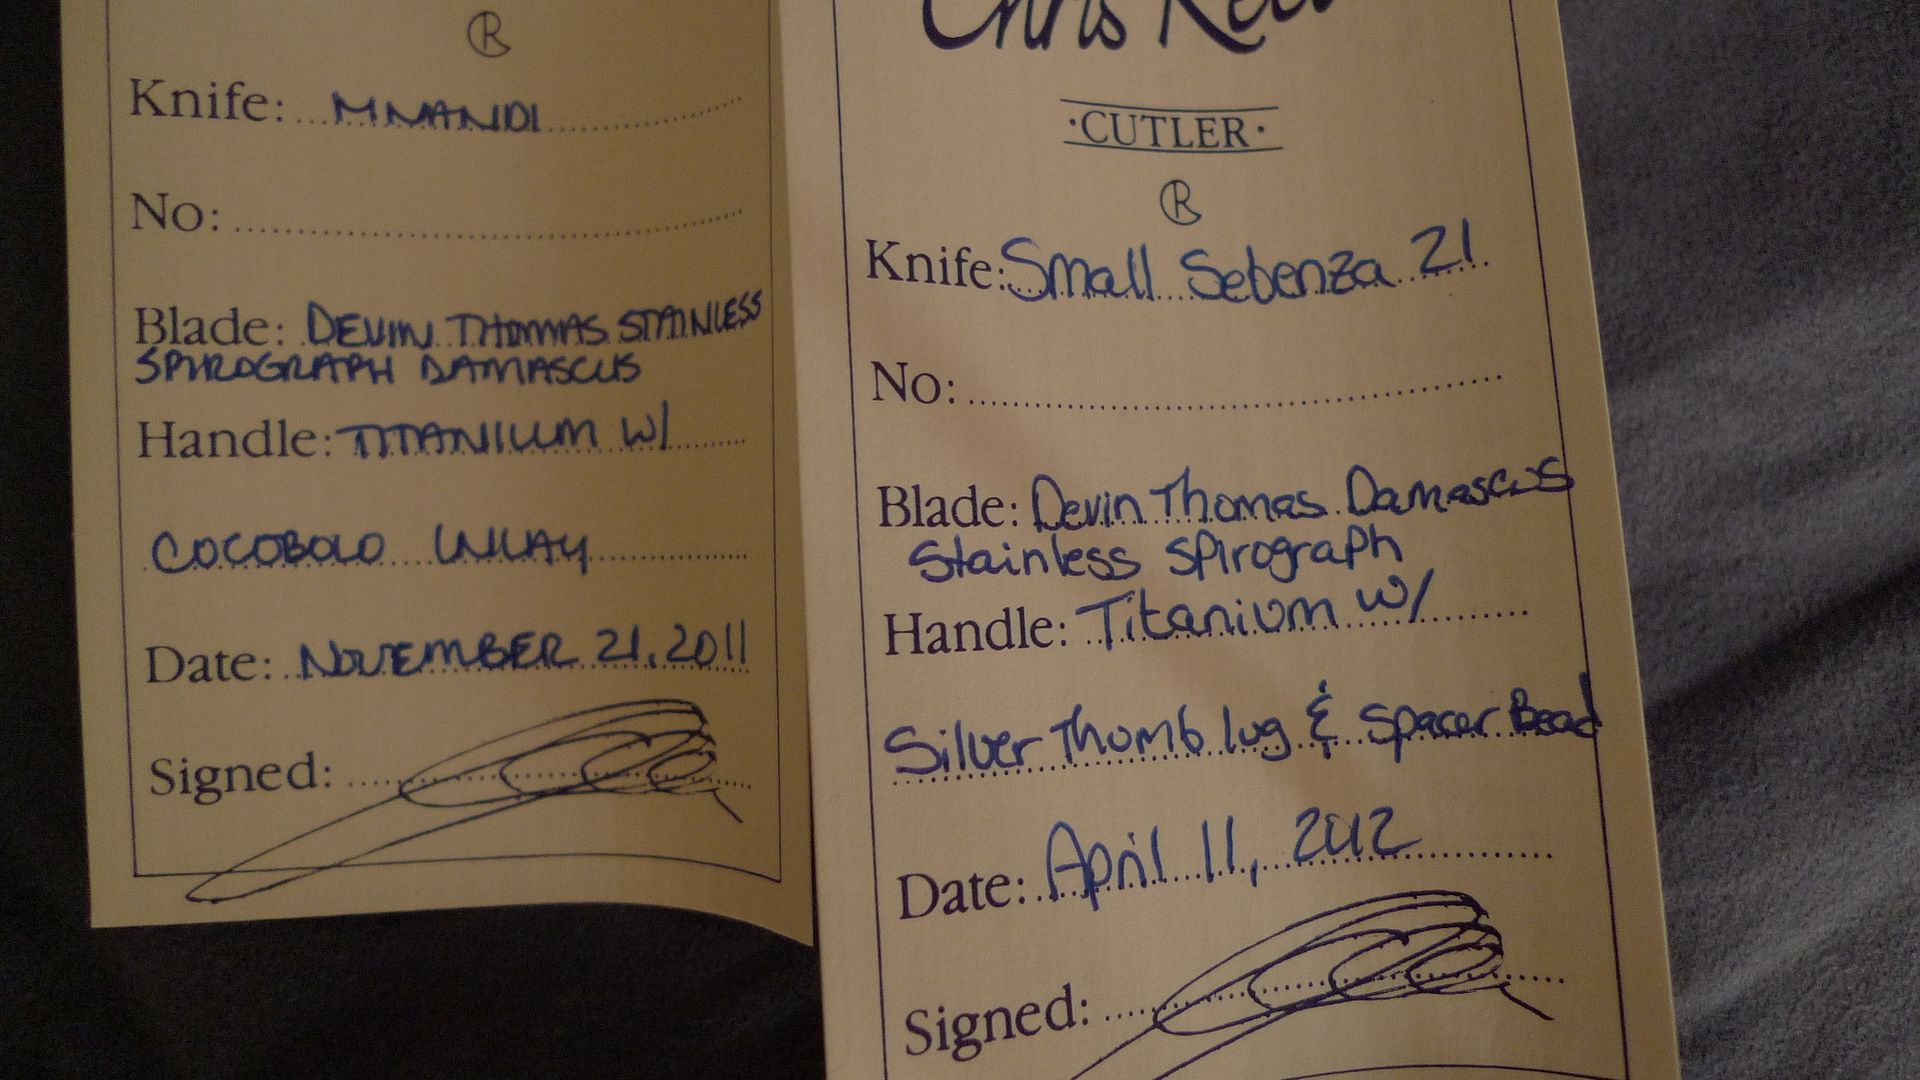 Ⓡ
Knife: MNANDI
No:
Blade: DEVIN THOMAS STAINLESS
SPIROGRAPH DAMASCUS
Handle: TITANIUM W/
COCOBOLO INLAY
Date: NOVEMBER 21, 2011
Signed:
Chris Reeve
·CUTLER·
Ⓡ
Knife: Small Sebenza 21
No:
Blade: Devin Thomas Damascus
Stainless Spirograph
Handle: Titanium w/
Silver Thumb lug & Spacer Bead
Date: April 11, 2012
Signed: